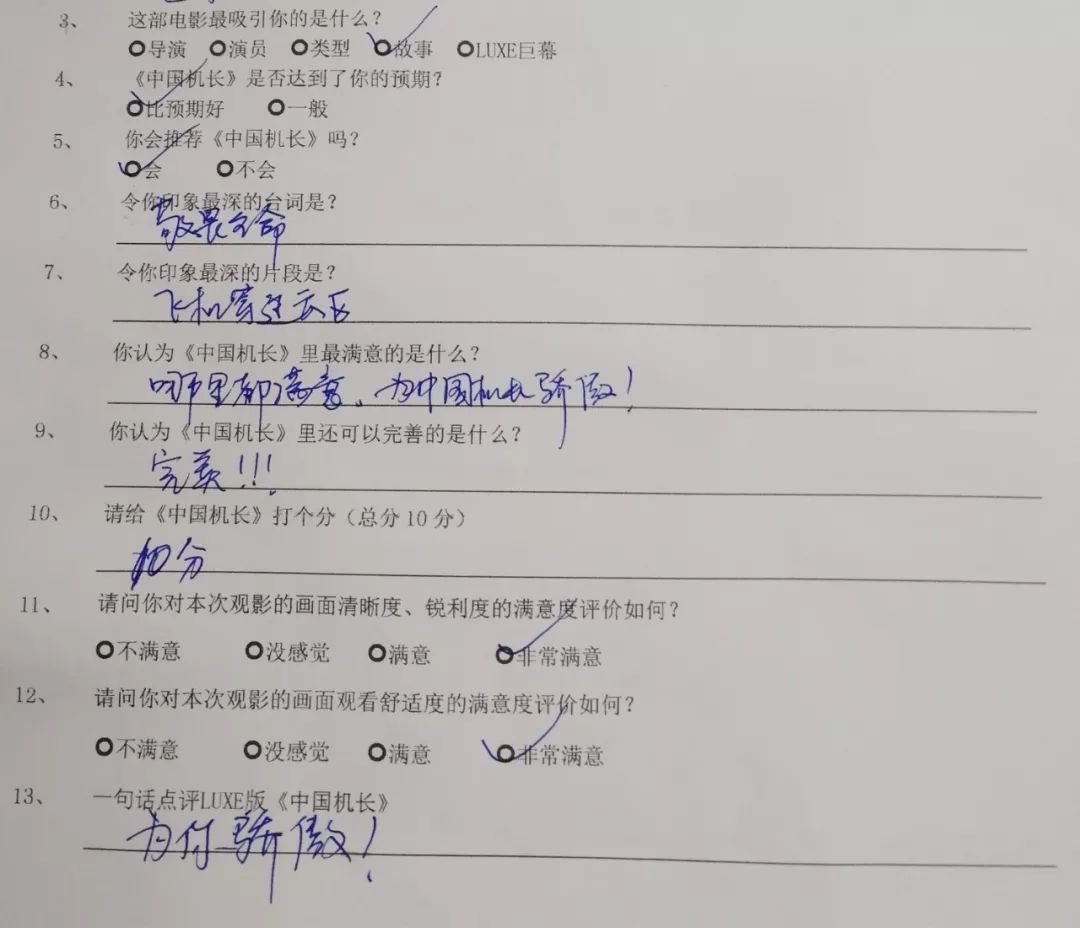 3、 这部电影最吸引你的是什么？
导演 演员 类型 故事 LUXE巨幕
4、 《中国机长》是否达到了你的预期？
比预期好 一般
5、 你会推荐《中国机长》吗？
会 不会
6、 令你印象最深的台词是？
敬畏生命
7、 令你印象最深的片段是？
飞机穿过云层
8、 你认为《中国机长》里最满意的是什么？
哪里都满意、为中国机长骄傲！
9、 你认为《中国机长》里还可以完善的是什么？
完美！！！
10、 请给《中国机长》打个分（总分10分）
10分
11、 请问你对本次观影的画面清晰度、锐利度的满意度评价如何？
不满意 没感觉 满意 非常满意
12、 请问你对本次观影的画面观看舒适度的满意度评价如何？
不满意 没感觉 满意 非常满意
13、 一句话点评LUXE版《中国机长》
为你骄傲！